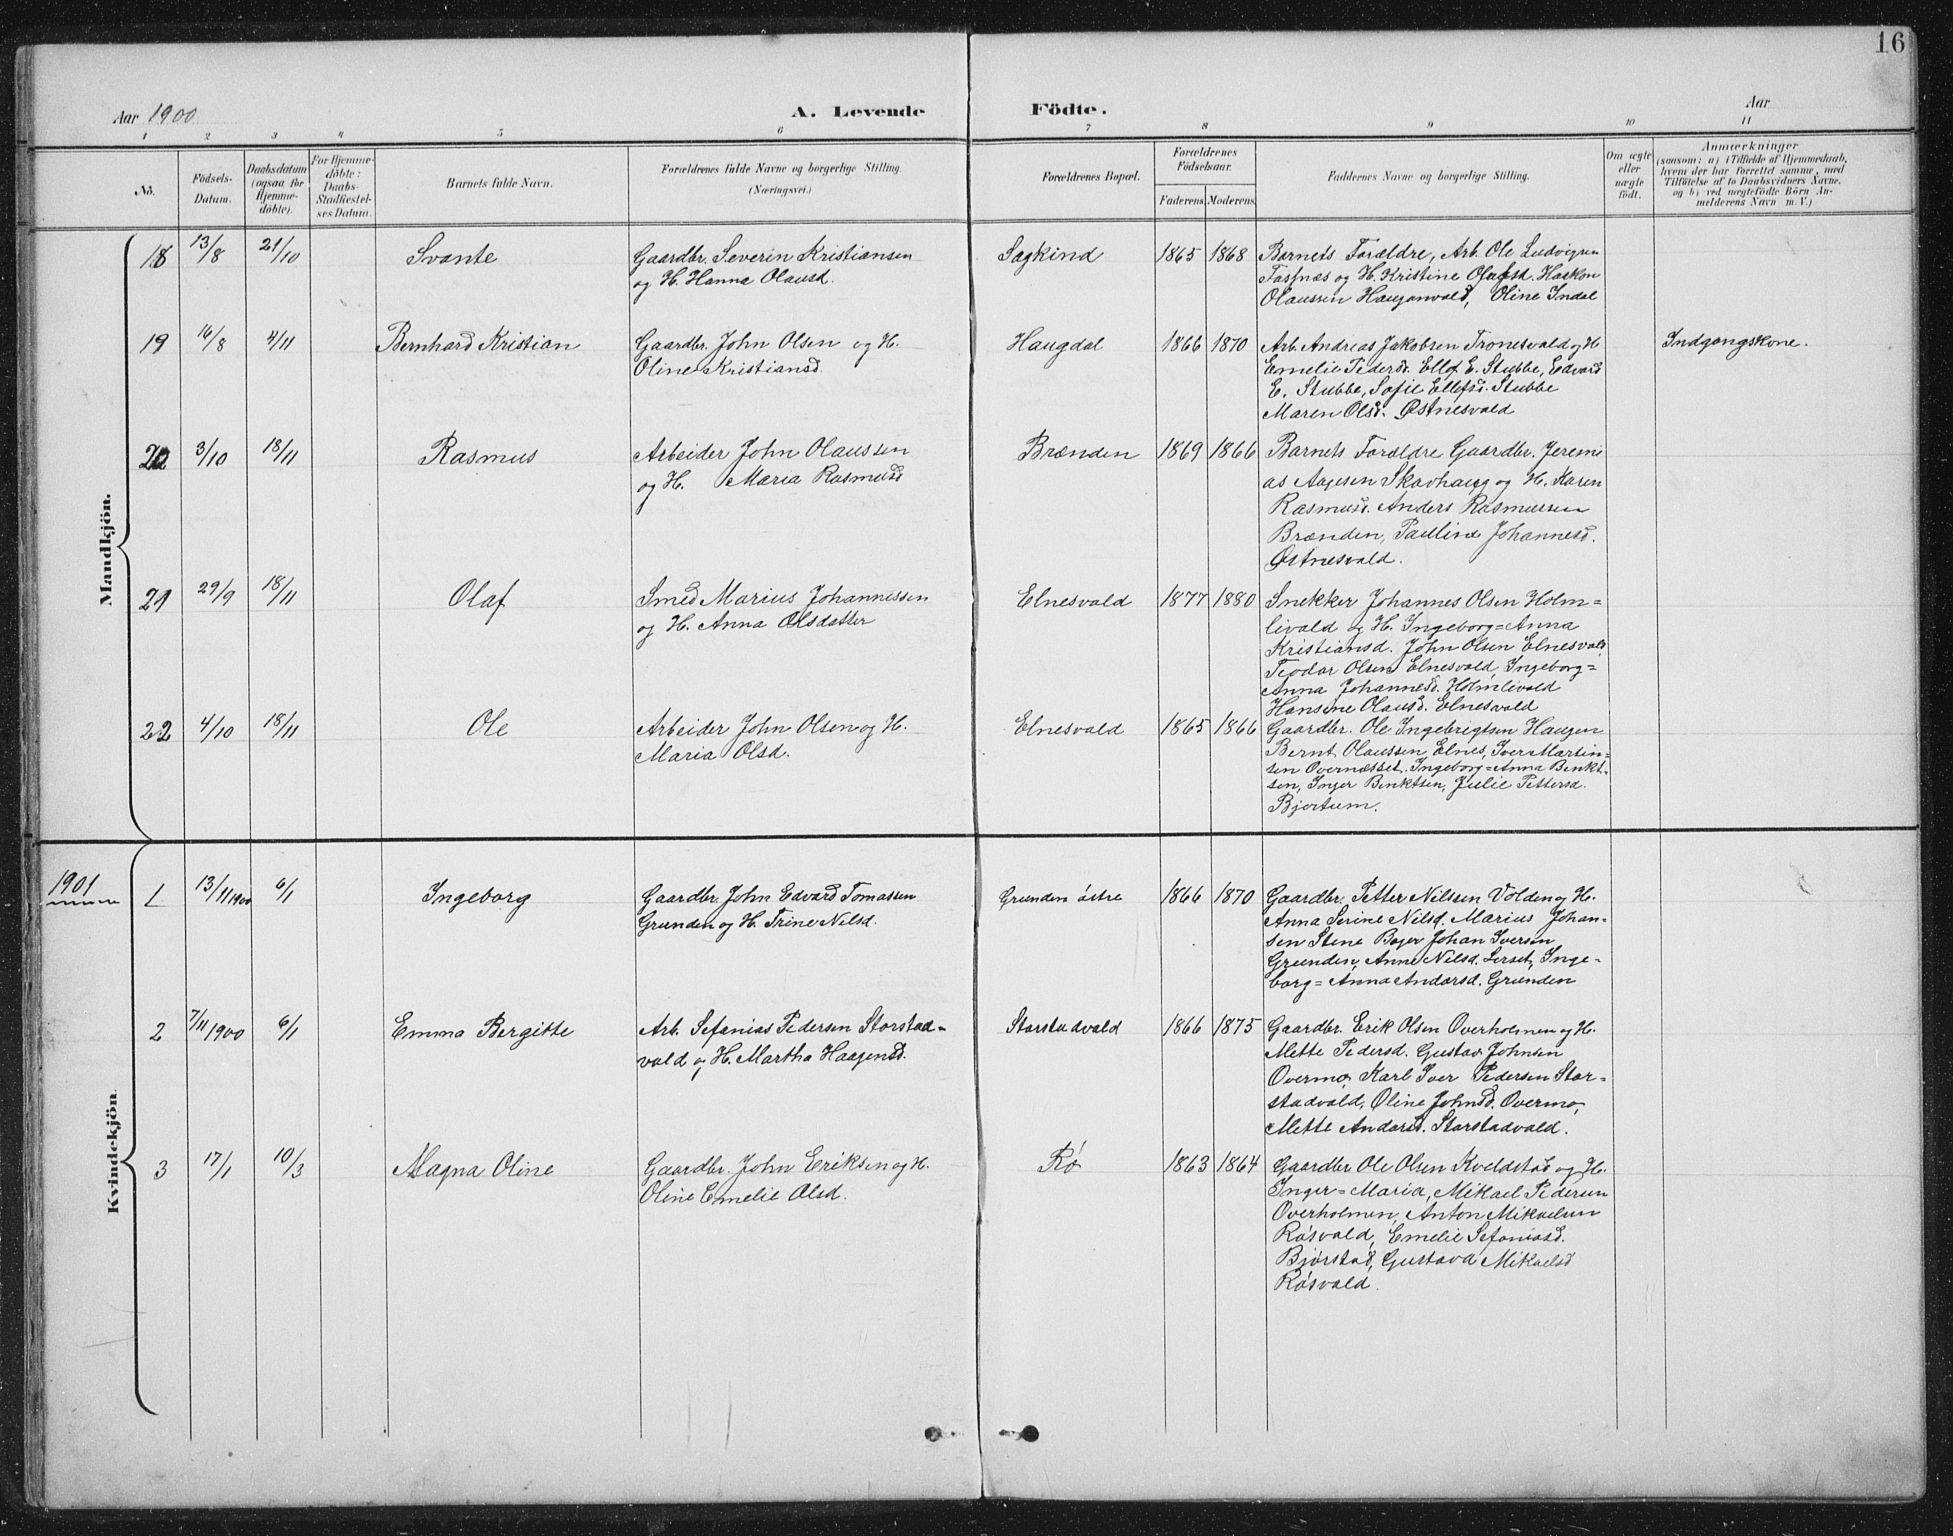 16
Aar 1900 A. Levende Födte. Aar
1 2 3 4 5 6 7 8 9 10 11
No.
Födsels-
Datum.
Daabsdatum
(ogsaa for
Hjemme-
döbte).
For Hjemme-
döbte:
Daabs-
Stadfæstel-
ses Datum.
Barnets fulde Navn.
Forældrenes fulde Navne og borgerlige Stilling.
(Næringsvei.)
Forældrenes Bopæl.
Forældrenes
Födselsaar.
Faderens Moderens
Faddernes Navne og borgerlige Stilling.
Om ægte
eller
uægte
födt.
Anmærkninger
(saasom: a) i Tilfælde af Hjemmedaab,
hvem der har forrettet samme, med
Tilföielse af to Daabsvidners Navne,
og b) ved uægtefödte Börn An-
melderens Navn m. V.)
Mandkjön.
18 13/8 21/10 Svante
Gaardbr. Severin Kristiansen
og H. Hanna Olausd.
Sagkind 1865 1868
Barnets Forældre, Arb. Ole Ludvigsen
og H. Kristine Haakon
Olaussen Hauganvald, Oline Indal
19 16/8 4/11 Bernhard Kristian
Gaardbr. John Olsen og H.
Oline Kristiansd.
Haugdal 1866 1870
Arb. Andreas Jakobsen Tronesvald og H
Emelie Pedersd. Ellef E. Stubbe, Edvard
E. Stubbe, Sofie Ellefsd. Stubbe
Maren Olsd. Østnesvald
Indgangskone.
20 3/10 18/11 Rasmus
Arbeider John Olaussen
og H. Maria Rasmusd
Brænden 1869 1866
Barnets Forældre Gaardbr. Jeremi
as Aagesen Skavhaug og H. Karen
Rasmusd. Anders Rasmussen
Brænden, Pauline Johannesd.
Østnesvald.
21 29/9 18/11 Olaf
Smed Marius Johannessen
og H. Anna Olsdatter
Elnesvald 1877 1880
Snekker Johannes Olsen Holm=
livald og H. Ingeborg=Anna
Kristiansd. John Olsen Elnesvald
Teodor Olsen Elnesvald, Ingeborg=
Anna Johannesd. Holmlivald
Hansine Olausd. Elnesvald
22 4/10 18/11 Ole
Arbeider John Olsen og H.
Maria Olsd.
Elnesvald 1865 1866
Gaardbr. Ole Ingebrigtsen Haugen
Bernt Olaussen Elnes, Iver Martin-
sen Overnesset, Ingeborg=Anna Benkt-
sen, Inger Benktsen, Julie Pettersd.
Bjartum.
Kvindekjön.
1901
1 13/11 1900 6/1 Ingeborg
Gaardbr. John Edvard Tomassen
Grunden og H. Trine Nilsd.
Grunden østre 1866 1870
Gaardbr. Petter Nilsen Volden og H.
Anna Serine Nilsd. Marius Johan-
sen Stene Johan Iversen
Grunden, Anne Nilsd. Lerset, Inge-
borg=Anna Andersd. Grunden
2 7/11 1900 6/1 Emma Bergitte
Arb. Sefanias Pedersen Storstad=
vald og H. Martha Haagensd.
Storstadvald 1866 1875
Gaardbr. Erik Olsen Overholmen og H.
Mette Pedersd. Gustav Johnsen
Overmo, Karl Iver Pedersen Stor=
stadvald, Oline Johnsd. Overmo,
Mette Andersd. Storstadvald.
3 17/1 10/3 Magna Oline
Gaardbr. John Eriksen og H.
Oline Emelie Olsd.
Rø 1863 1864
Gaardbr Ole Olsen Kveldstad og H.
Inger=Maria, Mikael Pedersen
Overholmen, Anton Mikaelsen
Røsvald, Emelie Sefaniasd.
Bjørstad, Gustava Mikaelsd
Røsvald.